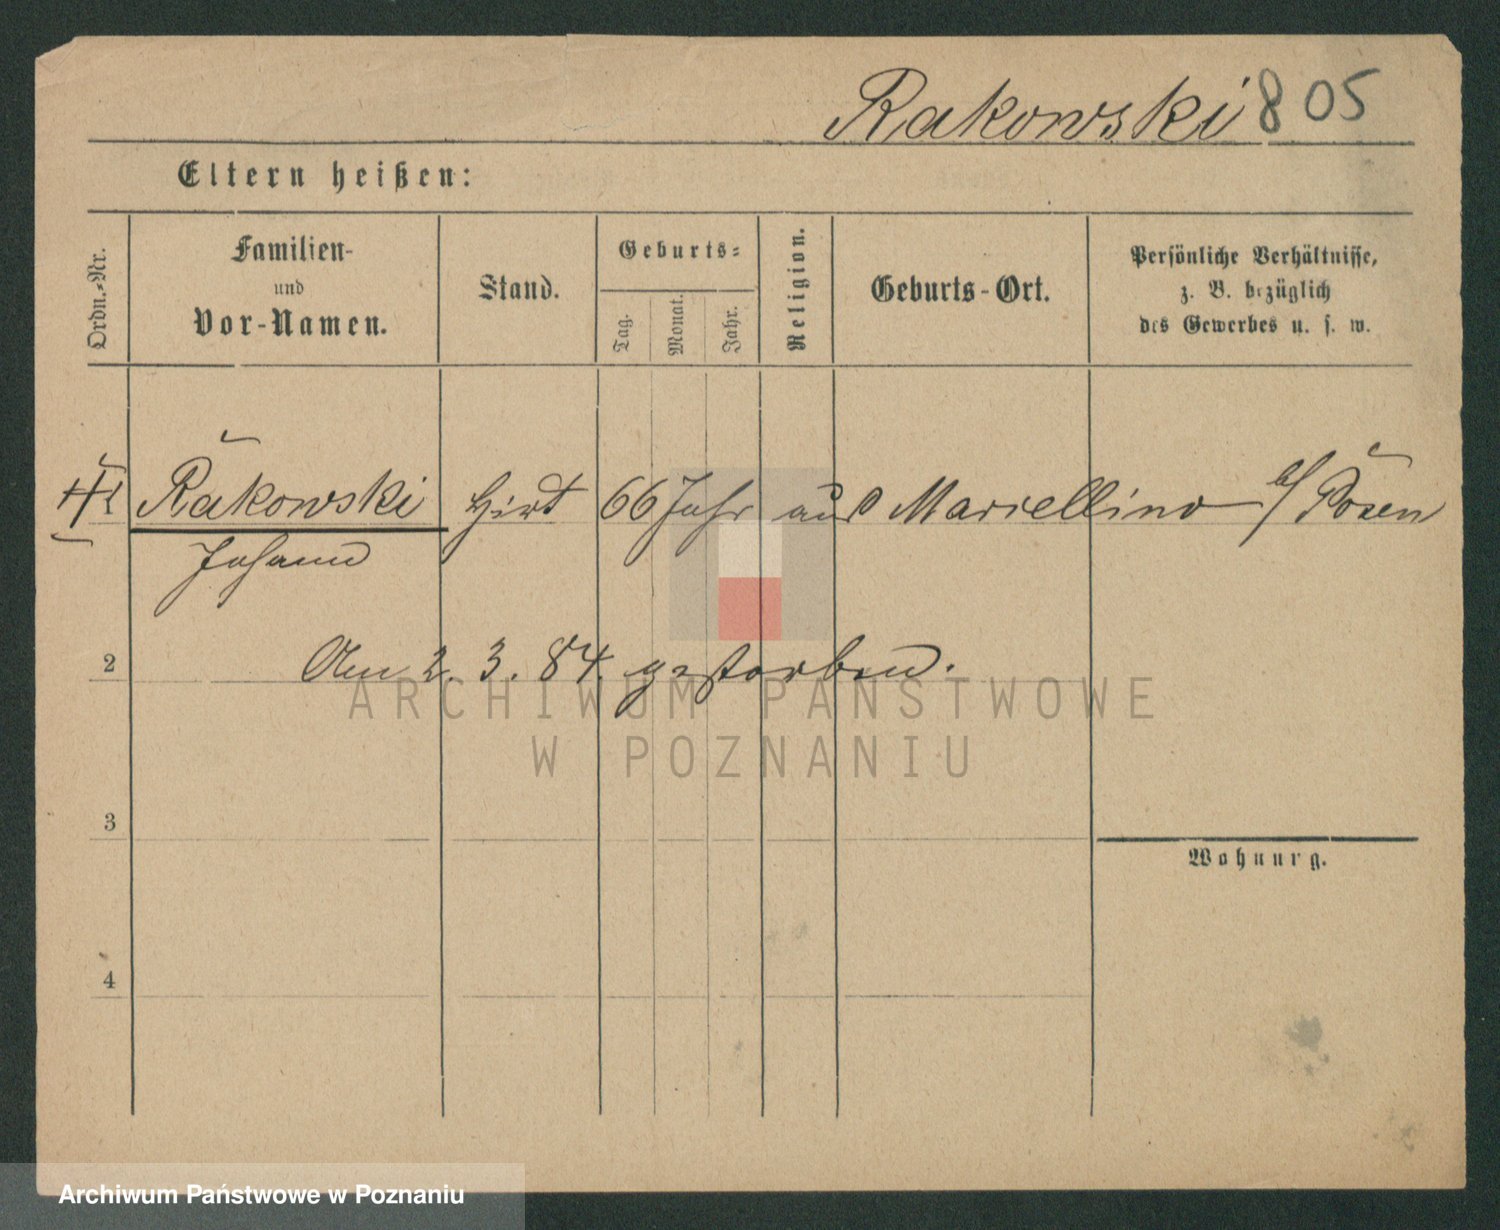 Rakowski 805
Eltern heißen:
Ordn.-Nr.
Familien-
und
Vor-Namen.
Stand.
Geburts-
Tag.
Monat.
Jahr.
Religion.
Geburts-Ort.
Persönliche Verhältnisse,
z. B. bezüglich
des Gewerbes u. s. w.
Rakowski Hirt 66 Jahr aus Mariellino b/ Posen
Johann
2
Am 2. 3. 84. gestorben.
ARCHIWUM PAŃSTWOWE
W POZNANIU
3
Wohnung.
4
Archiwum Państwowe w Poznaniu